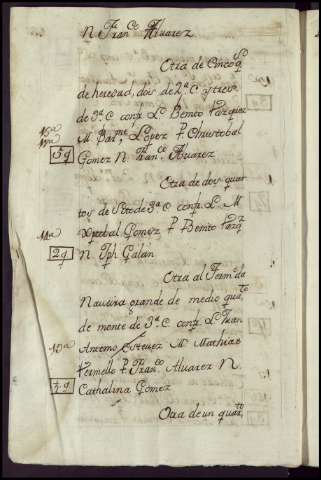 N. Fran.co Albarez
Otra de Cinco q.s
de heredad, dos de 2.ª C y tres
de 3.ª C conf. L. Benito Vazquez
15.ª M. Bar.me Lopez P. Christobal
5 q. Gomez N. Fran.co Albarez
Otra de dos quar
tos de Soto de 3.ª C conf. L. M.
11.ª Xptobal Gomez P. Benito Vazq.z
2 q. N. Jph Galàn
Otra al Term.o da
Naveira grande de medio qua.to
de monte de 3.ª C. conf. L. Juan
10.ª Antonio Estevez M. Mathias
Vermello P. Fran.co Alvarez N.
Cathalina Gomez
Otra de un quar.to